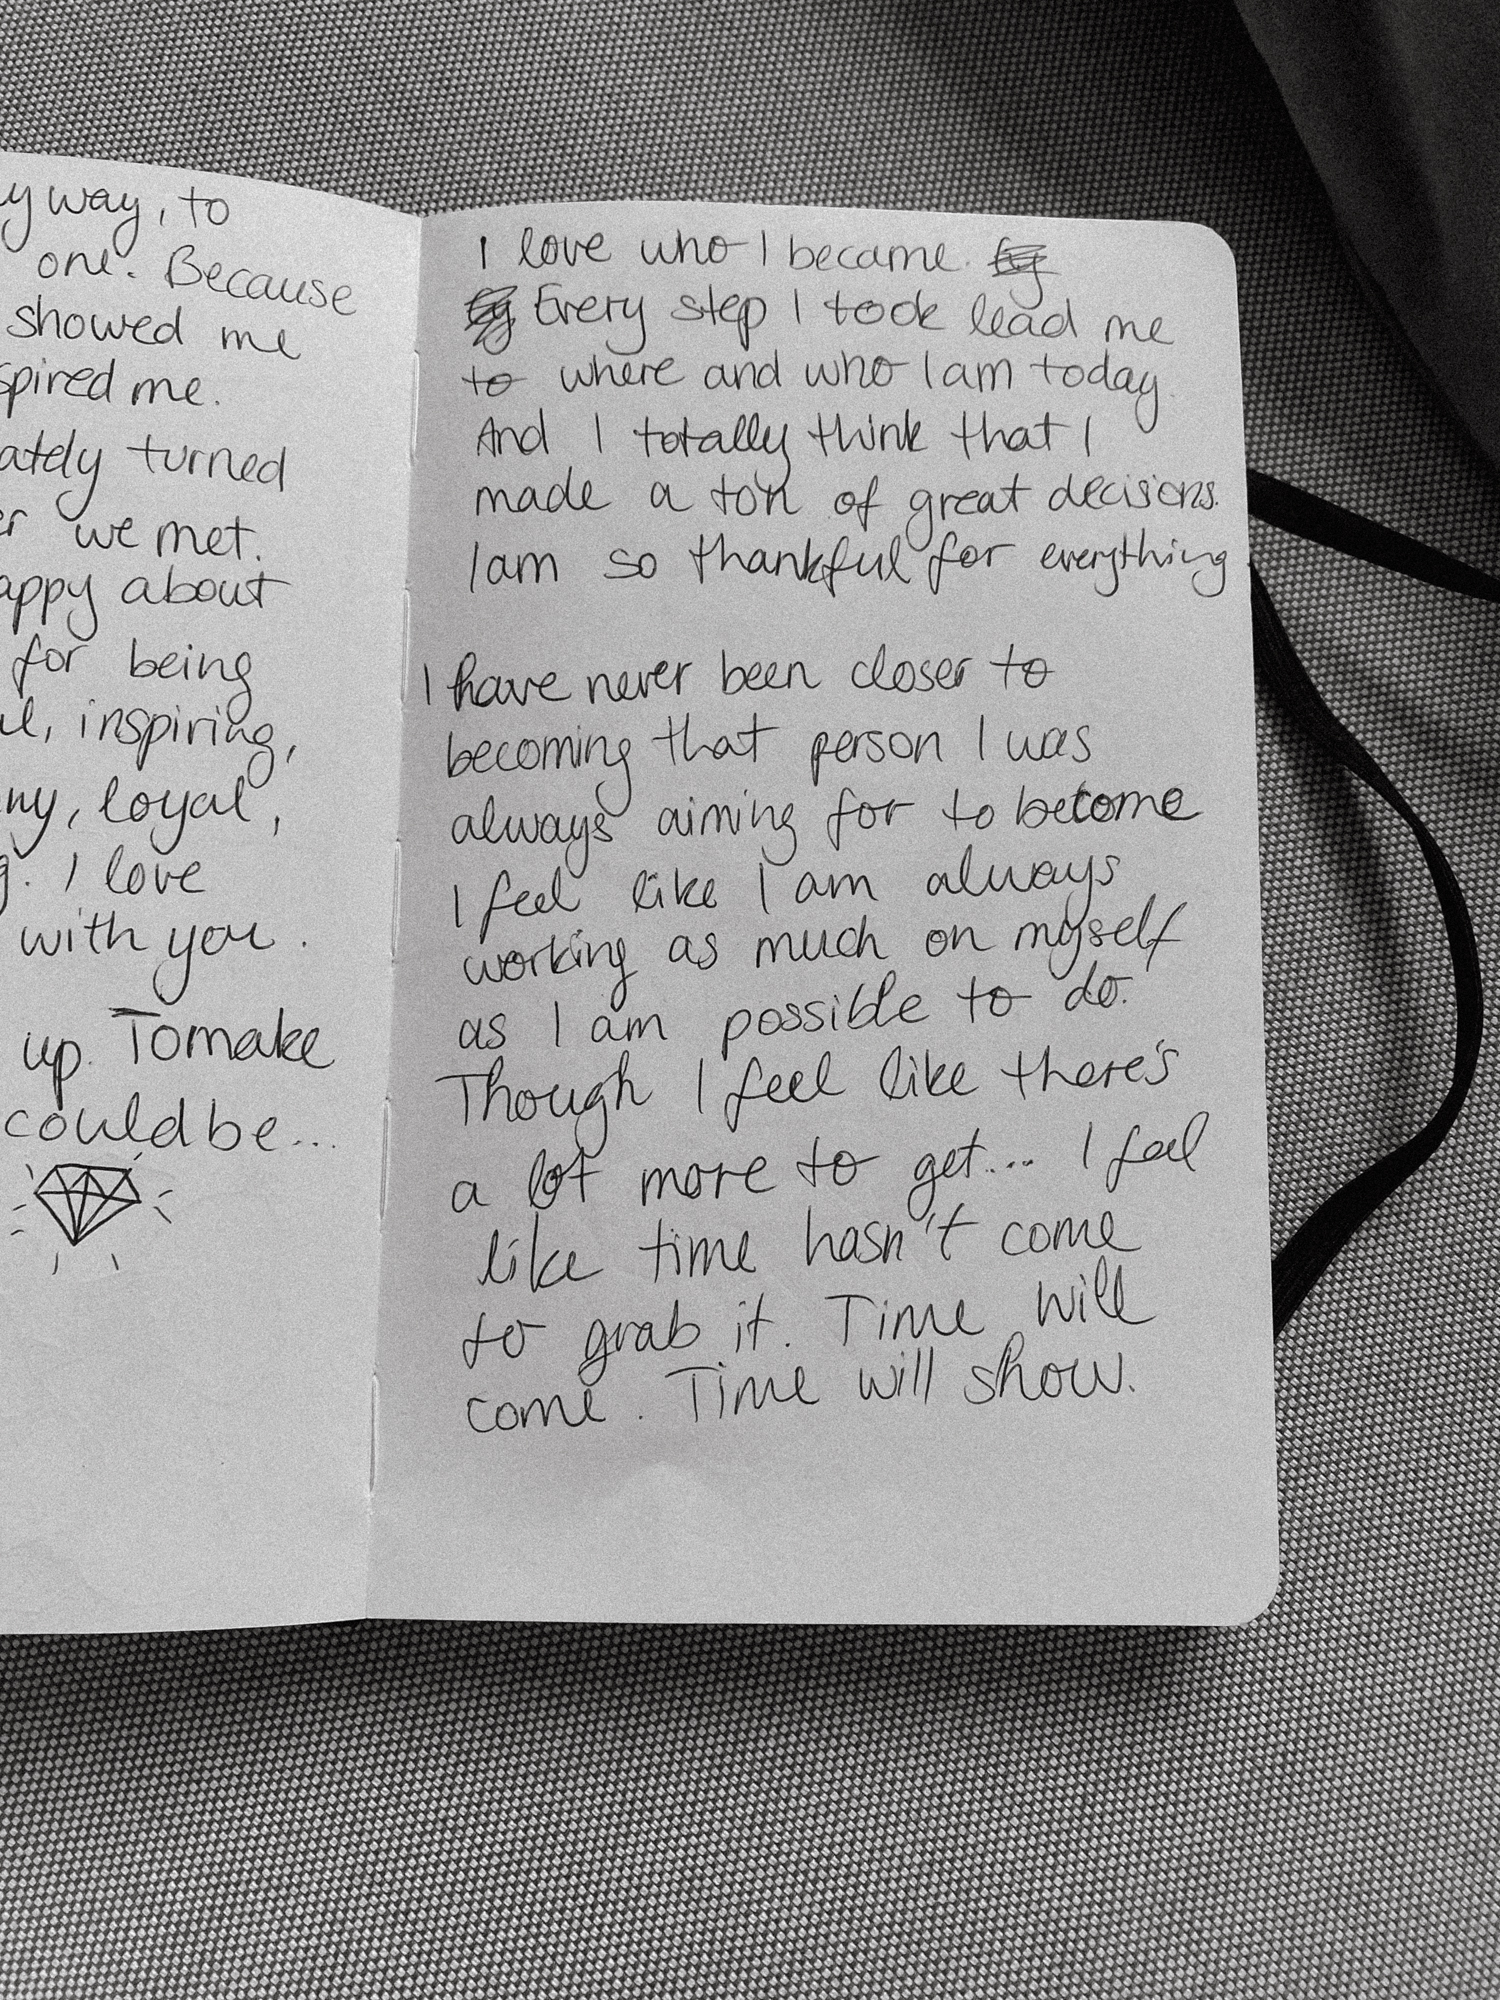 y way, to
one. Because
showed me
spired me.
ately turned
er we met.
appy about
for being
ul, inspiring,
ny, loyal,
g. I love
with you.
up. To make
could be...
I love who I became.
Every step I took lead me
to where and who I am today.
And I totally think that I
made a ton of great decisions.
I am so thankful for everything
I have never been closer to
becoming that person I was
always aiming for to become
I feel like I am always
working as much on myself
as I am possible to do.
Though I feel like there's
a lot more to get... I feel
like time hasn't come
to grab it. Time will
come. Time will show.